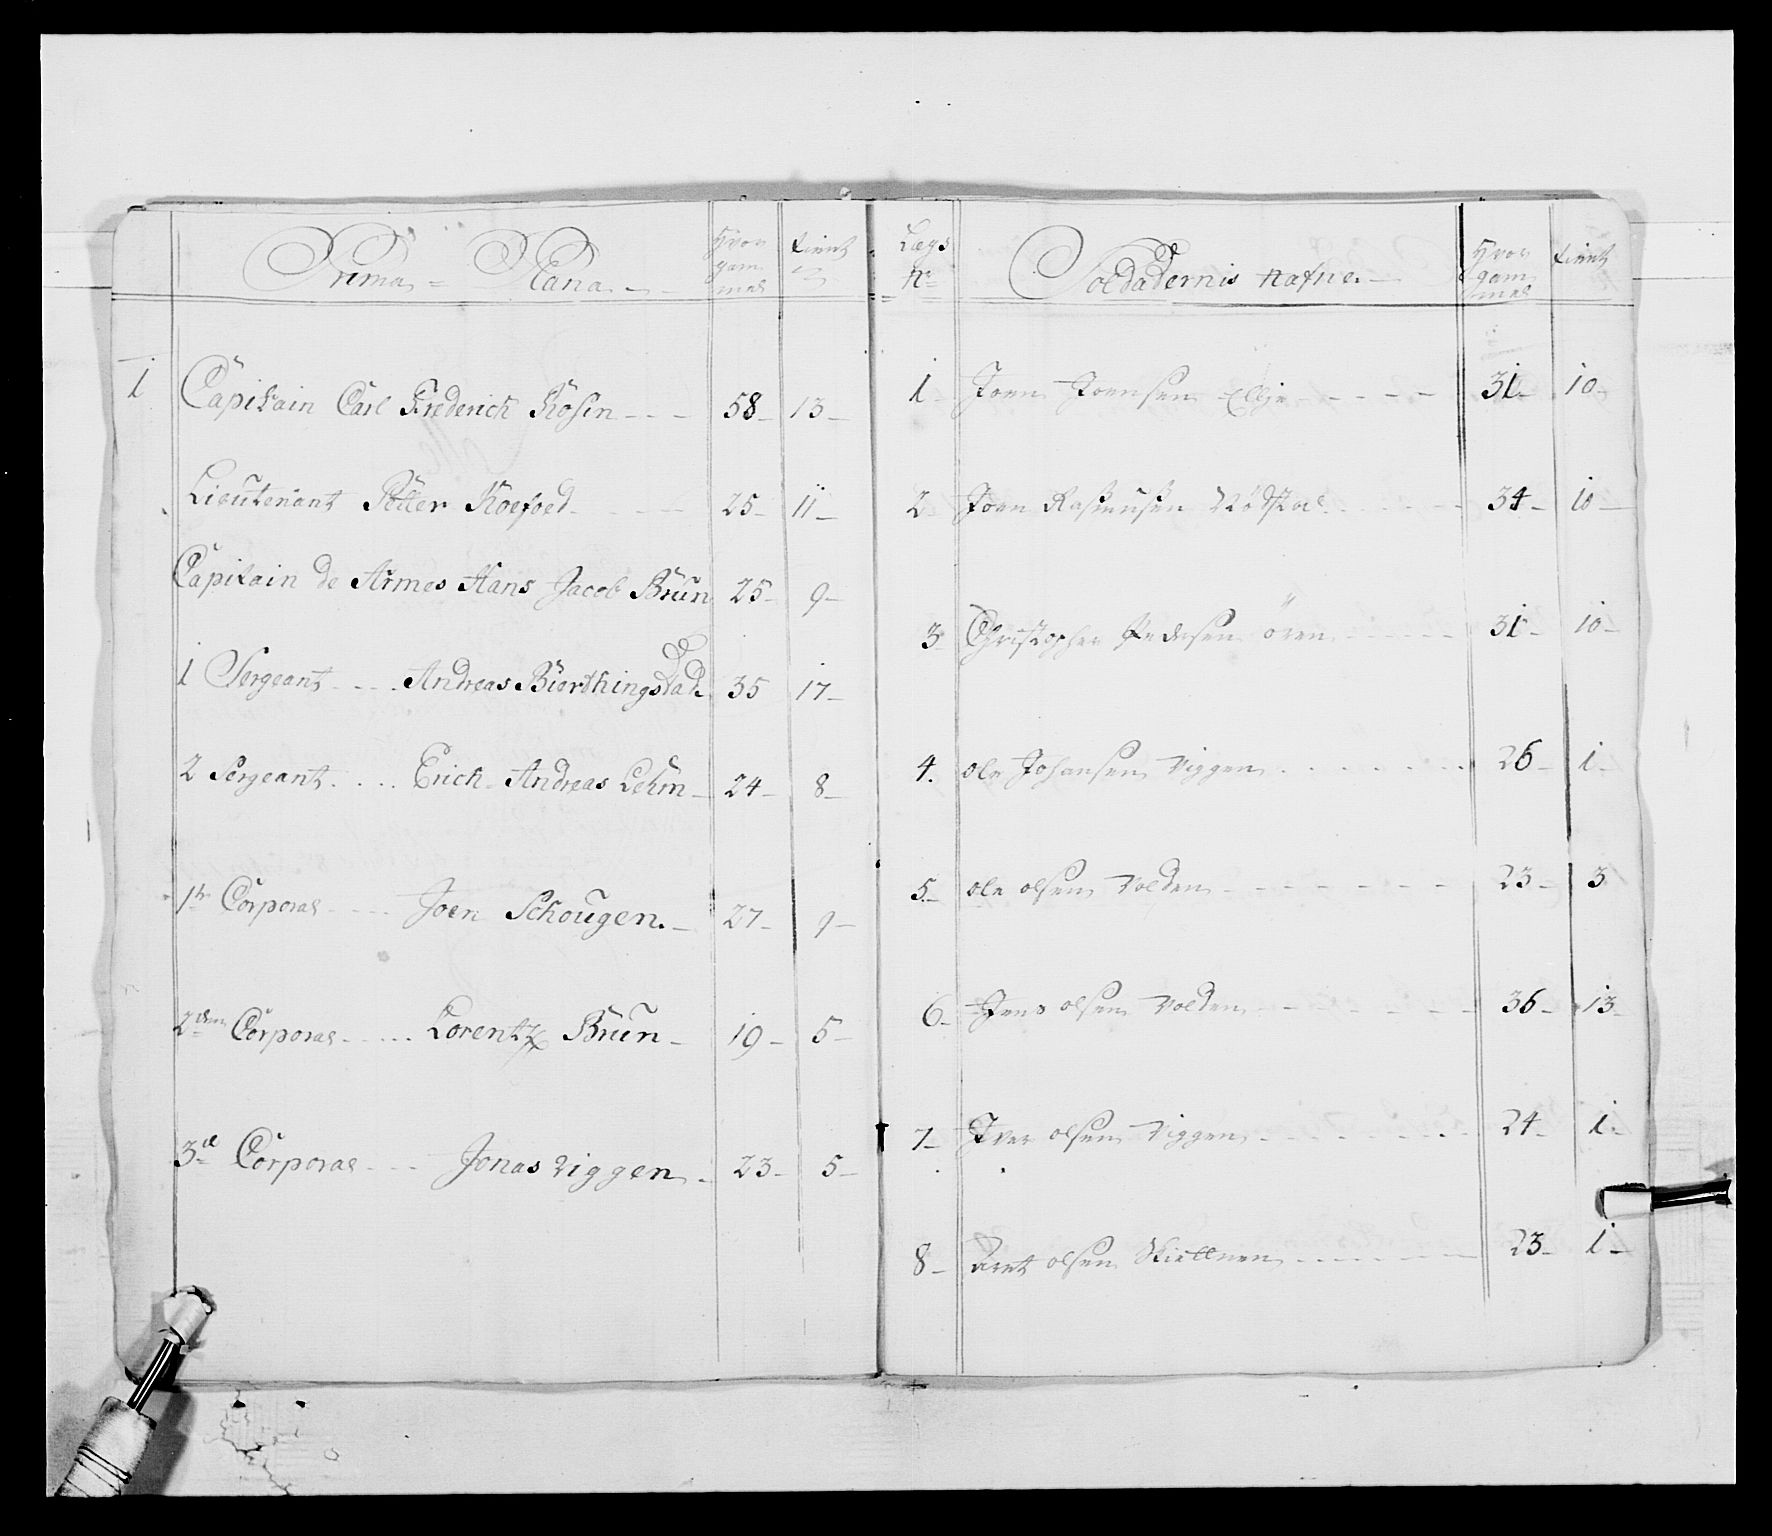 Prima Plana
Hvor gam mel
tient
1
Capitain Carl Frederich Rosin 58 13
Lieutenant Petter Koefoed 25 11
Capitain de Armes Hans Jacob Brun 25 9
1 Sergeant Andreas Biorthingstad 35 17
2 Sergeant Erich Andreas Lehm 24 8
1te Corporal Joen Schougen 27 9
2den Corporal Lorentz Brun 19 5
3de Corporal Jonas Viggen 23 5
Lægs No
Soldadernis nafne
Hvor gam mel
tient
1 Joen Joensen 31 10
2 Joen Rasmusen 34 10
3 Christopher Pedersen ören 31 10
4. ole Johansen Viggen 26 1
5 ole olsen Volden 23 3
6 Jens olsen Volden 36 13
7 Iver olsen Viggen 24 1
8 Arnt olsen 23 1